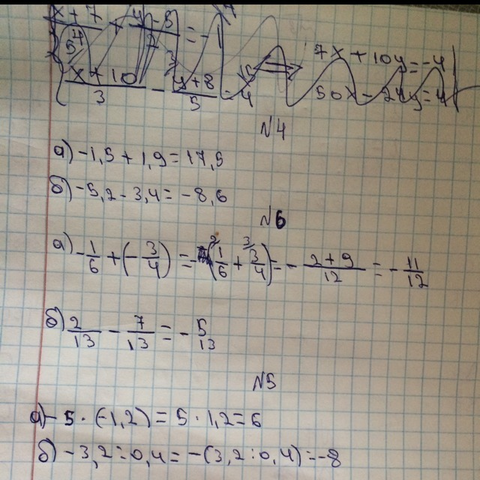 x+7/3 + y-8/2 = -1
x+10/3 - y+8/5 = 4
7x+10y=-4
50x-24y=4
№4
а) -1,5+1,9=17,5
б) -5,2-3,4=-8,6
№6
а) -1/6+(-3/4)=-(1/6+3/4)=-2+9/12=-11/12
б) 2/13-7/13=-5/13
№5
а) -5·(-1,2)=5·1,2=6
б) -3,2:0,4=-(3,2:0,4)=-8